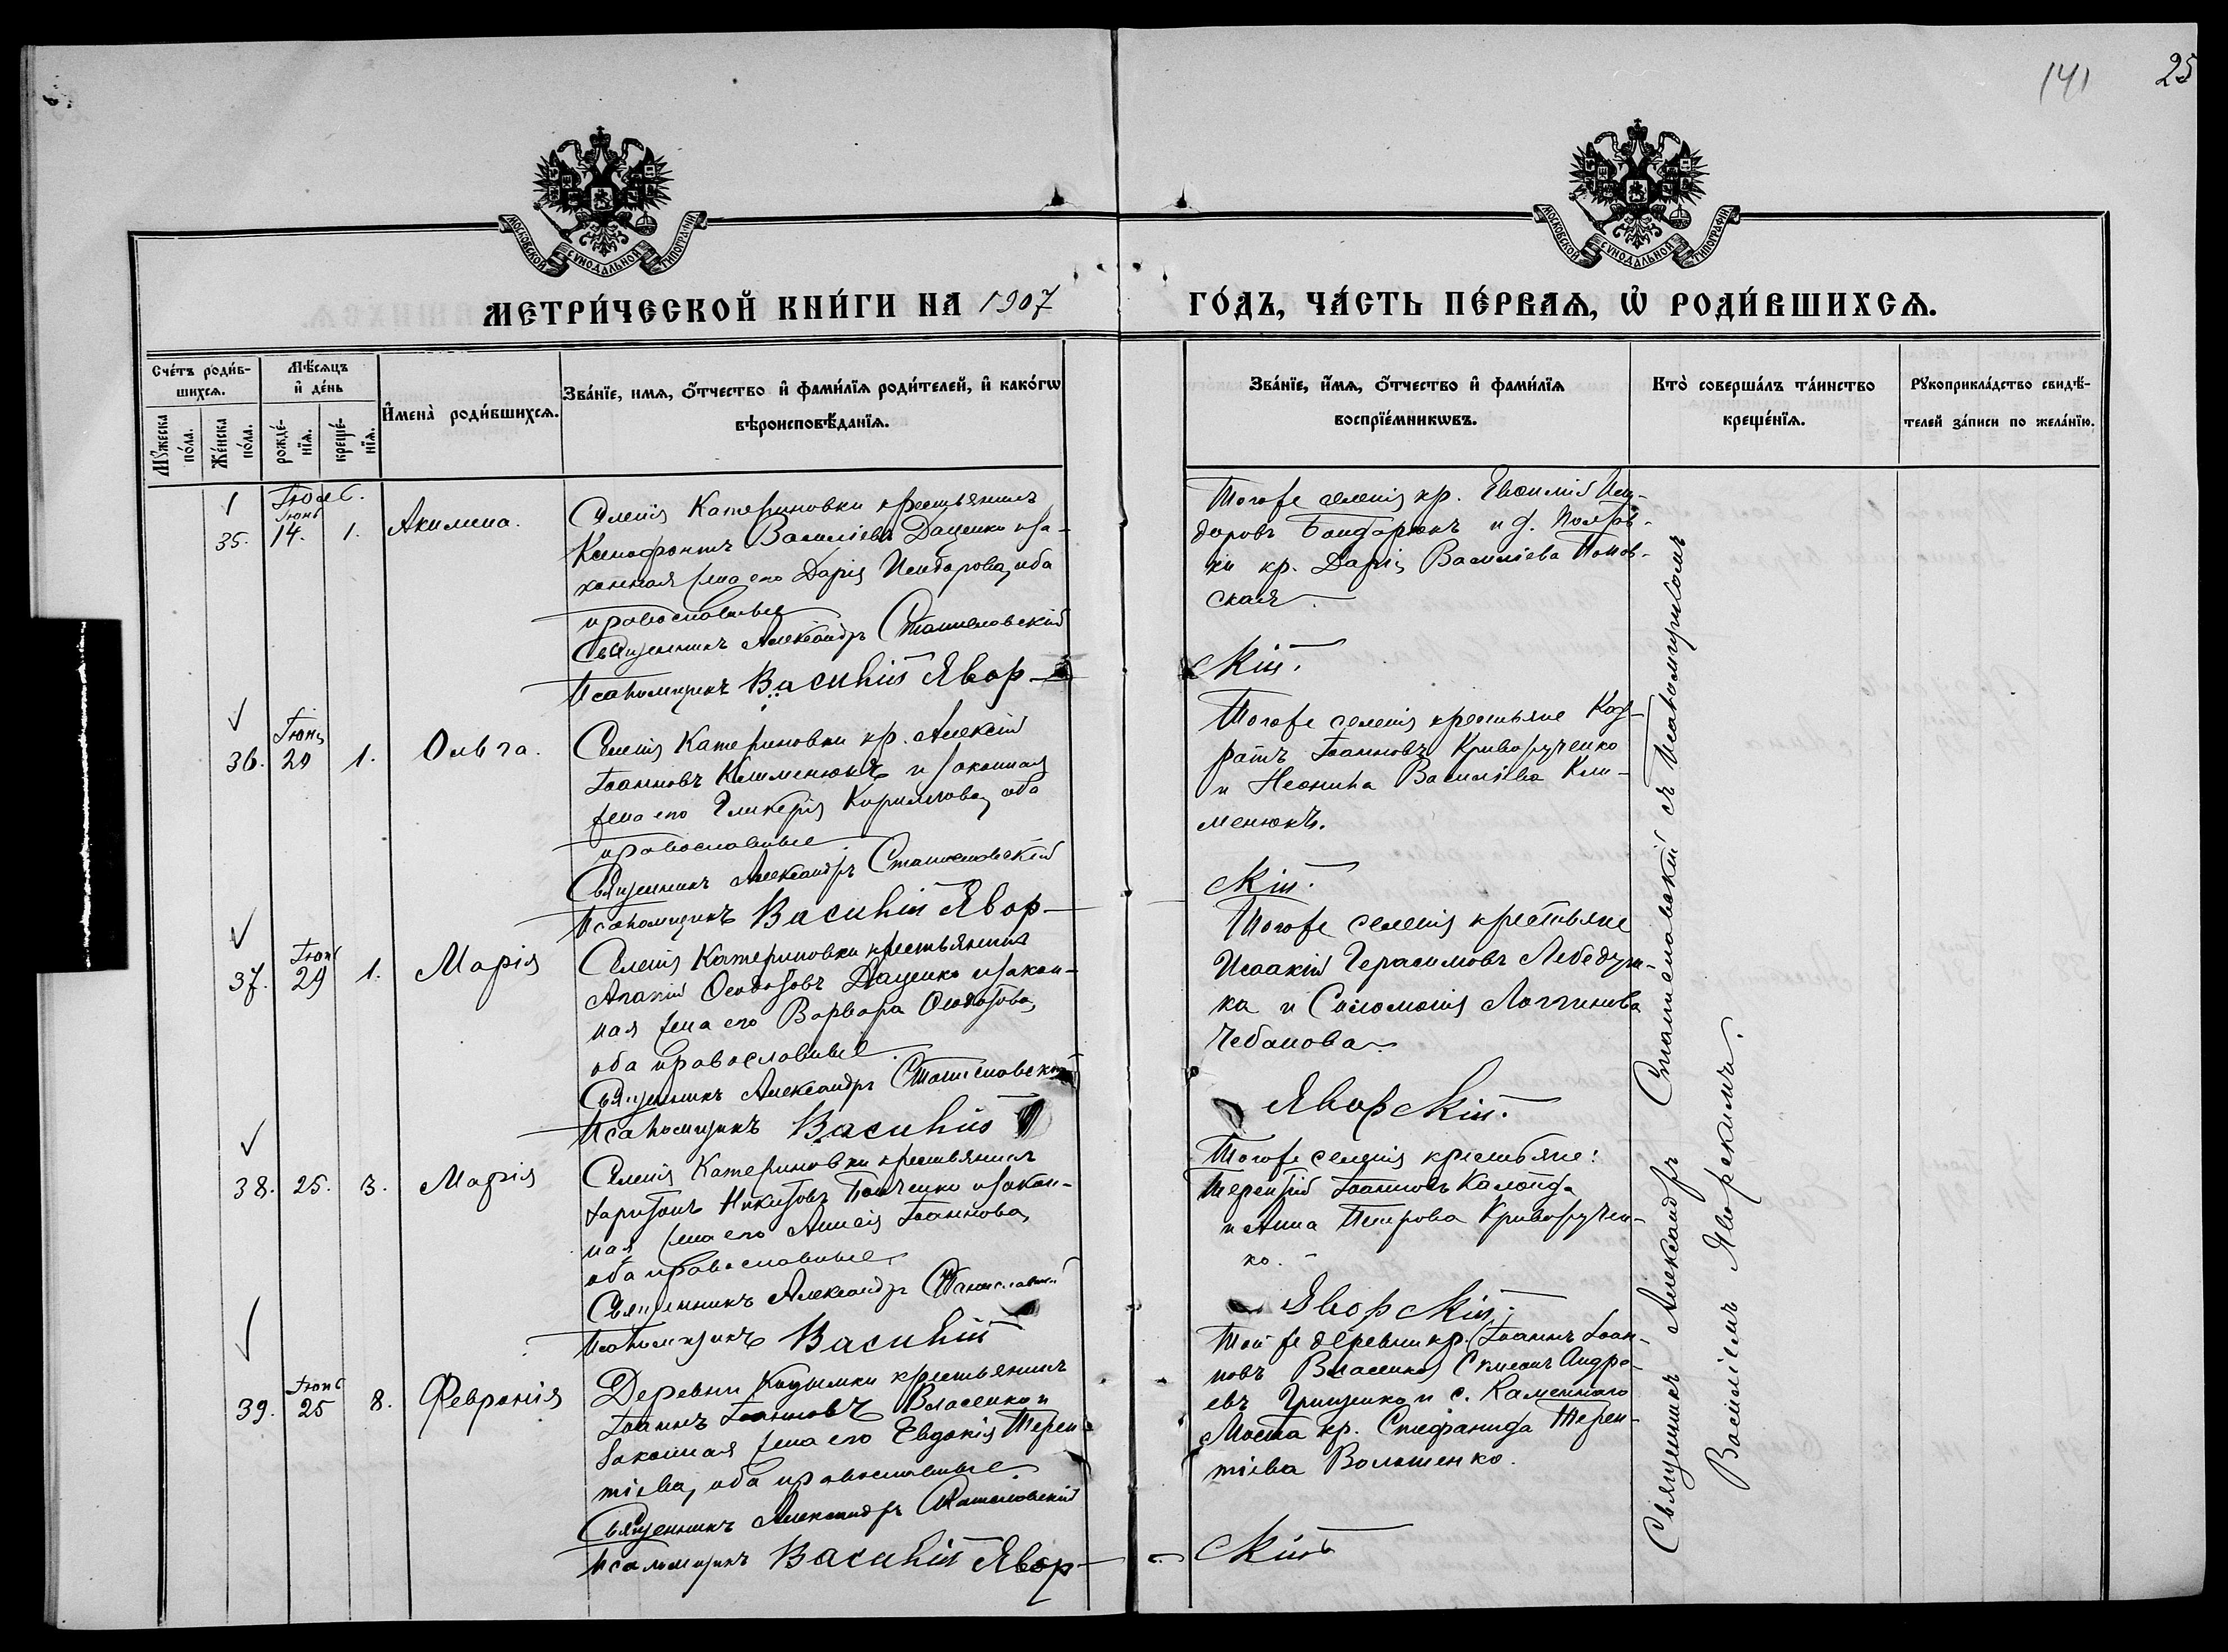 141
25
МОСКОВСКОЙ СѴНОДАЛЬНОЙ ТИПОГРАФІИ
МОСКОВСКОЙ СѴНОДАЛЬНОЙ ТИПОГРАФІИ
МЕТРИ́ЧЕСКОЙ КНИ́ГИ НА 1907
ГО́ДЪ, ЧА́СТЬ ПЕ́РВАѦ, Ѡ҆ РОДИ́ВШИХСѦ.
Сче́тъ роди́в-
шихсѧ.
Мꙋ́жеска
по́ла.
Же́нска
по́ла.
Мѣ́сѧцъ
и҆ де́нь
рожде́-
нїѧ.
креще́-
нїѧ.
И҆мена̀ роди́вшихсѧ.
Зва́нїе, имѧ, ѻ҆́тчество и҆ фами́лїѧ роди́телей, и҆ како́гѡ
вѣроисповѣ́данїѧ.
Зва́нїе, и҆́мѧ, ѻ҆́тчество и҆ фами́лїѧ
воспрїе́мникѡвъ.
Кто̀ соверша́лъ та́инство
креще́нїѧ.
Рꙋкоприкла́дство свидѣ́-
телей за́писи по жела́нїю.
1
Іюль.
Іюнь
35. 14. 1. Акилина.
Селенія Катериновки крестьянинъ
Ксенофонтъ Василіевъ Даценко и за-
конная жена его Дарія Исидорова, оба
православные
Священникъ Александръ Станиславскій
Псаломщикъ Василій Явор-
Тогоже селенія кр. Евѳимій Иси-
доровъ Бондарюкъ и д.
ки кр. Дарія Василіева Попов-
ская.
скій.
Іюня
36. 20 1. Ольга.
Селенія Катериновки кр. Алексій
Іоанновъ Клименюкъ и законная
жена его Гликерія Кириллова, оба
православные.
Священникъ Александръ Станиславскій
Псаломщикъ Василій Явор-
Тогоже селенія крестьяне Код-
ратъ Іоанновъ Криворученко
и Неонила Василіева Кли-
менюкъ.
скій.
Іюнь
37. 29 1. Марія
Селенія Катериновки крестьянинъ
Ананій Ѳеодотовъ Даценко и закон-
ная жена его Варвара Ѳеодотова,
оба православные.
Священникъ Александръ Станиславскій
Псаломщикъ Василій
Тогоже селенія крестьяне
Исаакій Герасимовъ Лебедин-
ка и Соломонія Логгинова
Чебанова.
Яворскій.
38. 25. 3. Марія
Селенія Катериновки крестьянинъ
Харитонъ Никитовъ Панченко и закон-
ная жена его Анисія Іоаннова,
оба православные.
Священникъ Александръ Станиславскій
Псаломщикъ Василій
Тогоже селенія крестьяне:
Терентій Іоанновъ Калойда
и Анна Петрова Криворучен-
ко.
Яворскій.
Іюнь
39. 25 8. Февронія
Деревни Кодымки крестьянинъ
Іоаннъ Іоанновъ Власенко и
законная жена его Евдокія Терен-
тіева, оба православные.
Священникъ Александръ Станиславскій
Псаломщикъ Василій Явор-
Той же деревни кр. Іоаннъ Іоан-
новъ Власенко, Симеонъ Андре-
евъ Грищенко и с. Каменнаго
Моста кр. Стефанида Терен-
тіева Волошенко.
скій
Священникъ Александръ Станиславскій съ Псаломщикомъ
Василіемъ Яворскимъ.